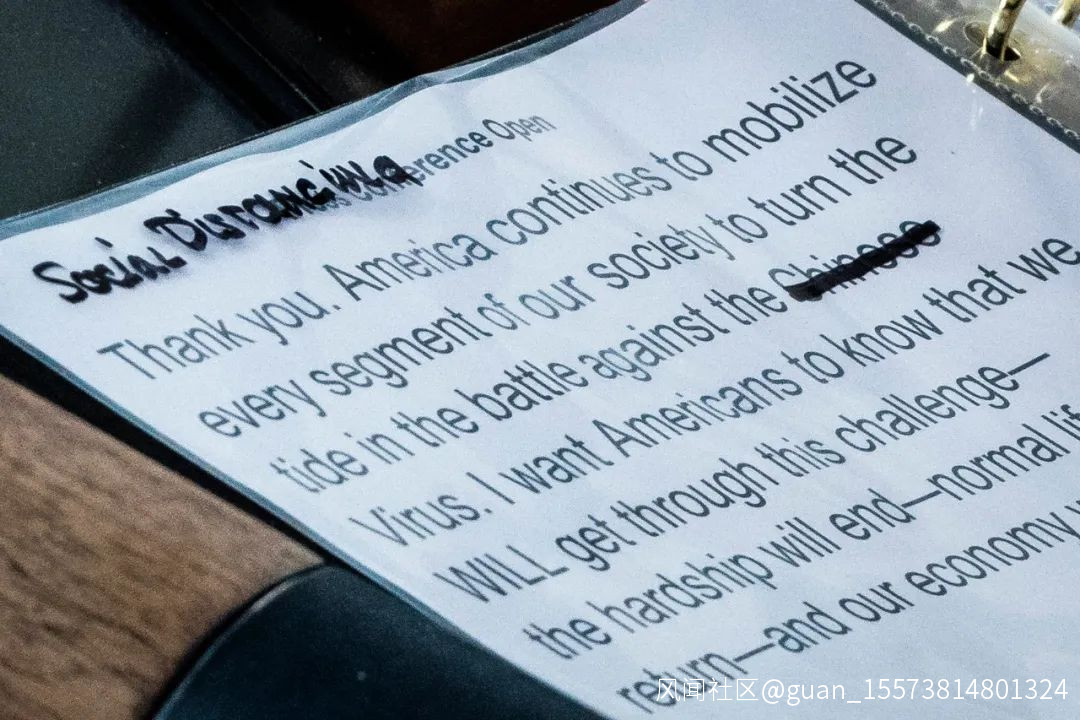 Social Distancing
Conference Open
Thank you. America continues to mobilize
every segment of our society to turn the
tide in the battle against the Chinese
Virus. I want Americans to know that we
WILL get through this challenge—
the hardship will end—normal
return—and our economy
风闻社区@guan_15573814801324